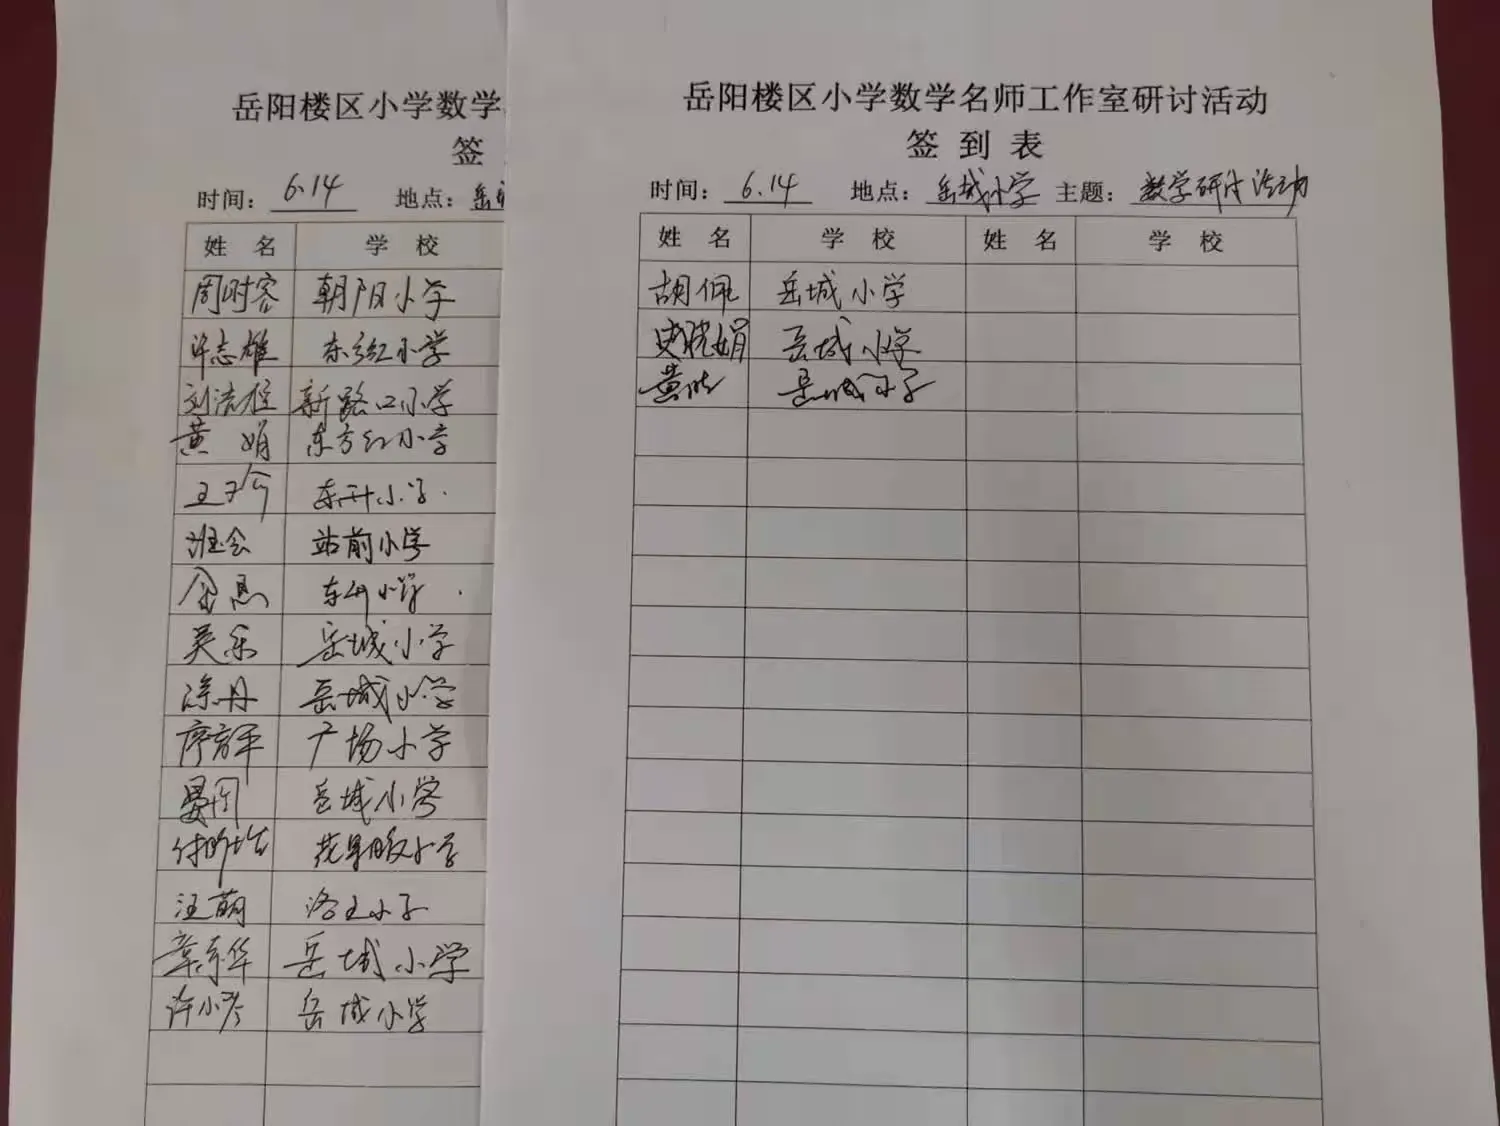 岳阳楼区小学数学
签
时间： 6.14 地点：岳
姓 名 学 校
周时容 朝阳小学
许志雄 东方红小学
新路口小学
黄 娟 东方红小学
东升小学
站前小学
东升小学
吴乐 岳城小学
涂丹 岳城小学
广场小学
晏 岳城小学
付 小学
汪萌 洛王小学
章 华 岳城小学
许小 岳城小学
岳阳楼区小学数学名师工作室研讨活动
签 到 表
时间： 6.14 地点：岳城小学 主题：数学研讨活动
姓 名 学 校 姓 名 学 校
胡佩 岳城小学
史晓娟 岳城小学
黄 岳城小学